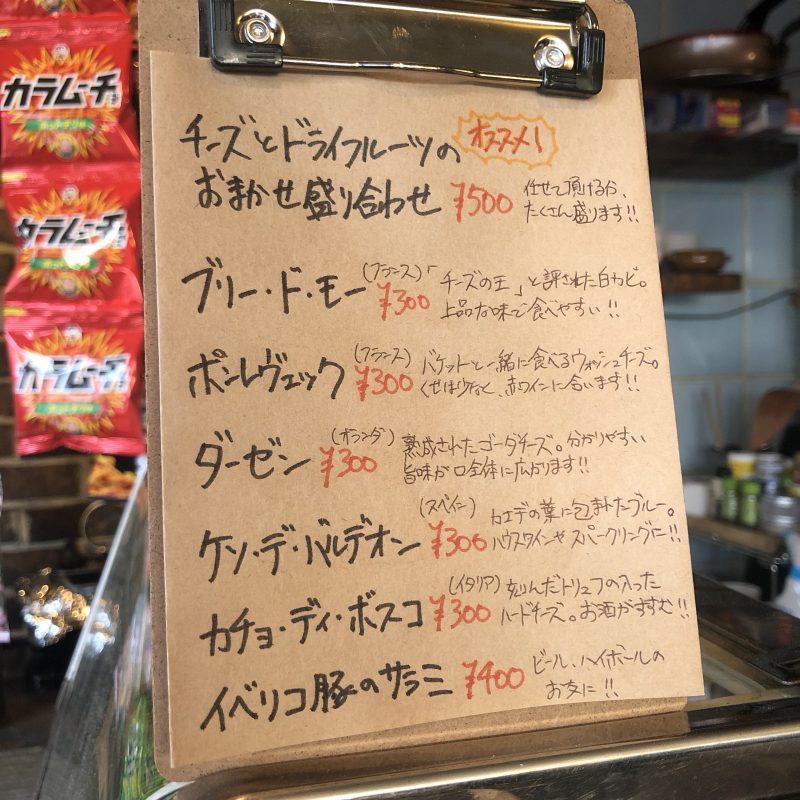 カラムーチョ
ホットチリ味
カラムーチョ
ホットチリ味
カラムーチョ
ホットチリ味
チーズとドライフルーツの
オススメ!
おまかせ盛り合わせ ¥500
任せて頂ける分、
たくさん盛ります!!
ブリー・ド・モー (フランス) ¥300
「チーズの王」と評された白カビ。
上品な味で食べやすい!!
ポンレヴェック (フランス) ¥300
バケットと一緒に食べるウォッシュチーズ。
くせは少なく、赤ワインに合います!!
ダーゼン (オランダ) ¥300
熟成されたゴーダチーズ。分かりやすい
旨味が口全体に広がります!!
ケソ・デ・バルデオン (スペイン) ¥300
カエデの葉に包まれたブルー。
ハウスワインやスパークリングに!!
カチョ・ディ・ボスコ (イタリア) ¥300
刻んだトリュフの入った
ハードチーズ。お酒がすすむ!!
イベリコ豚のサラミ ¥400
ビール、ハイボールの
お友に!!